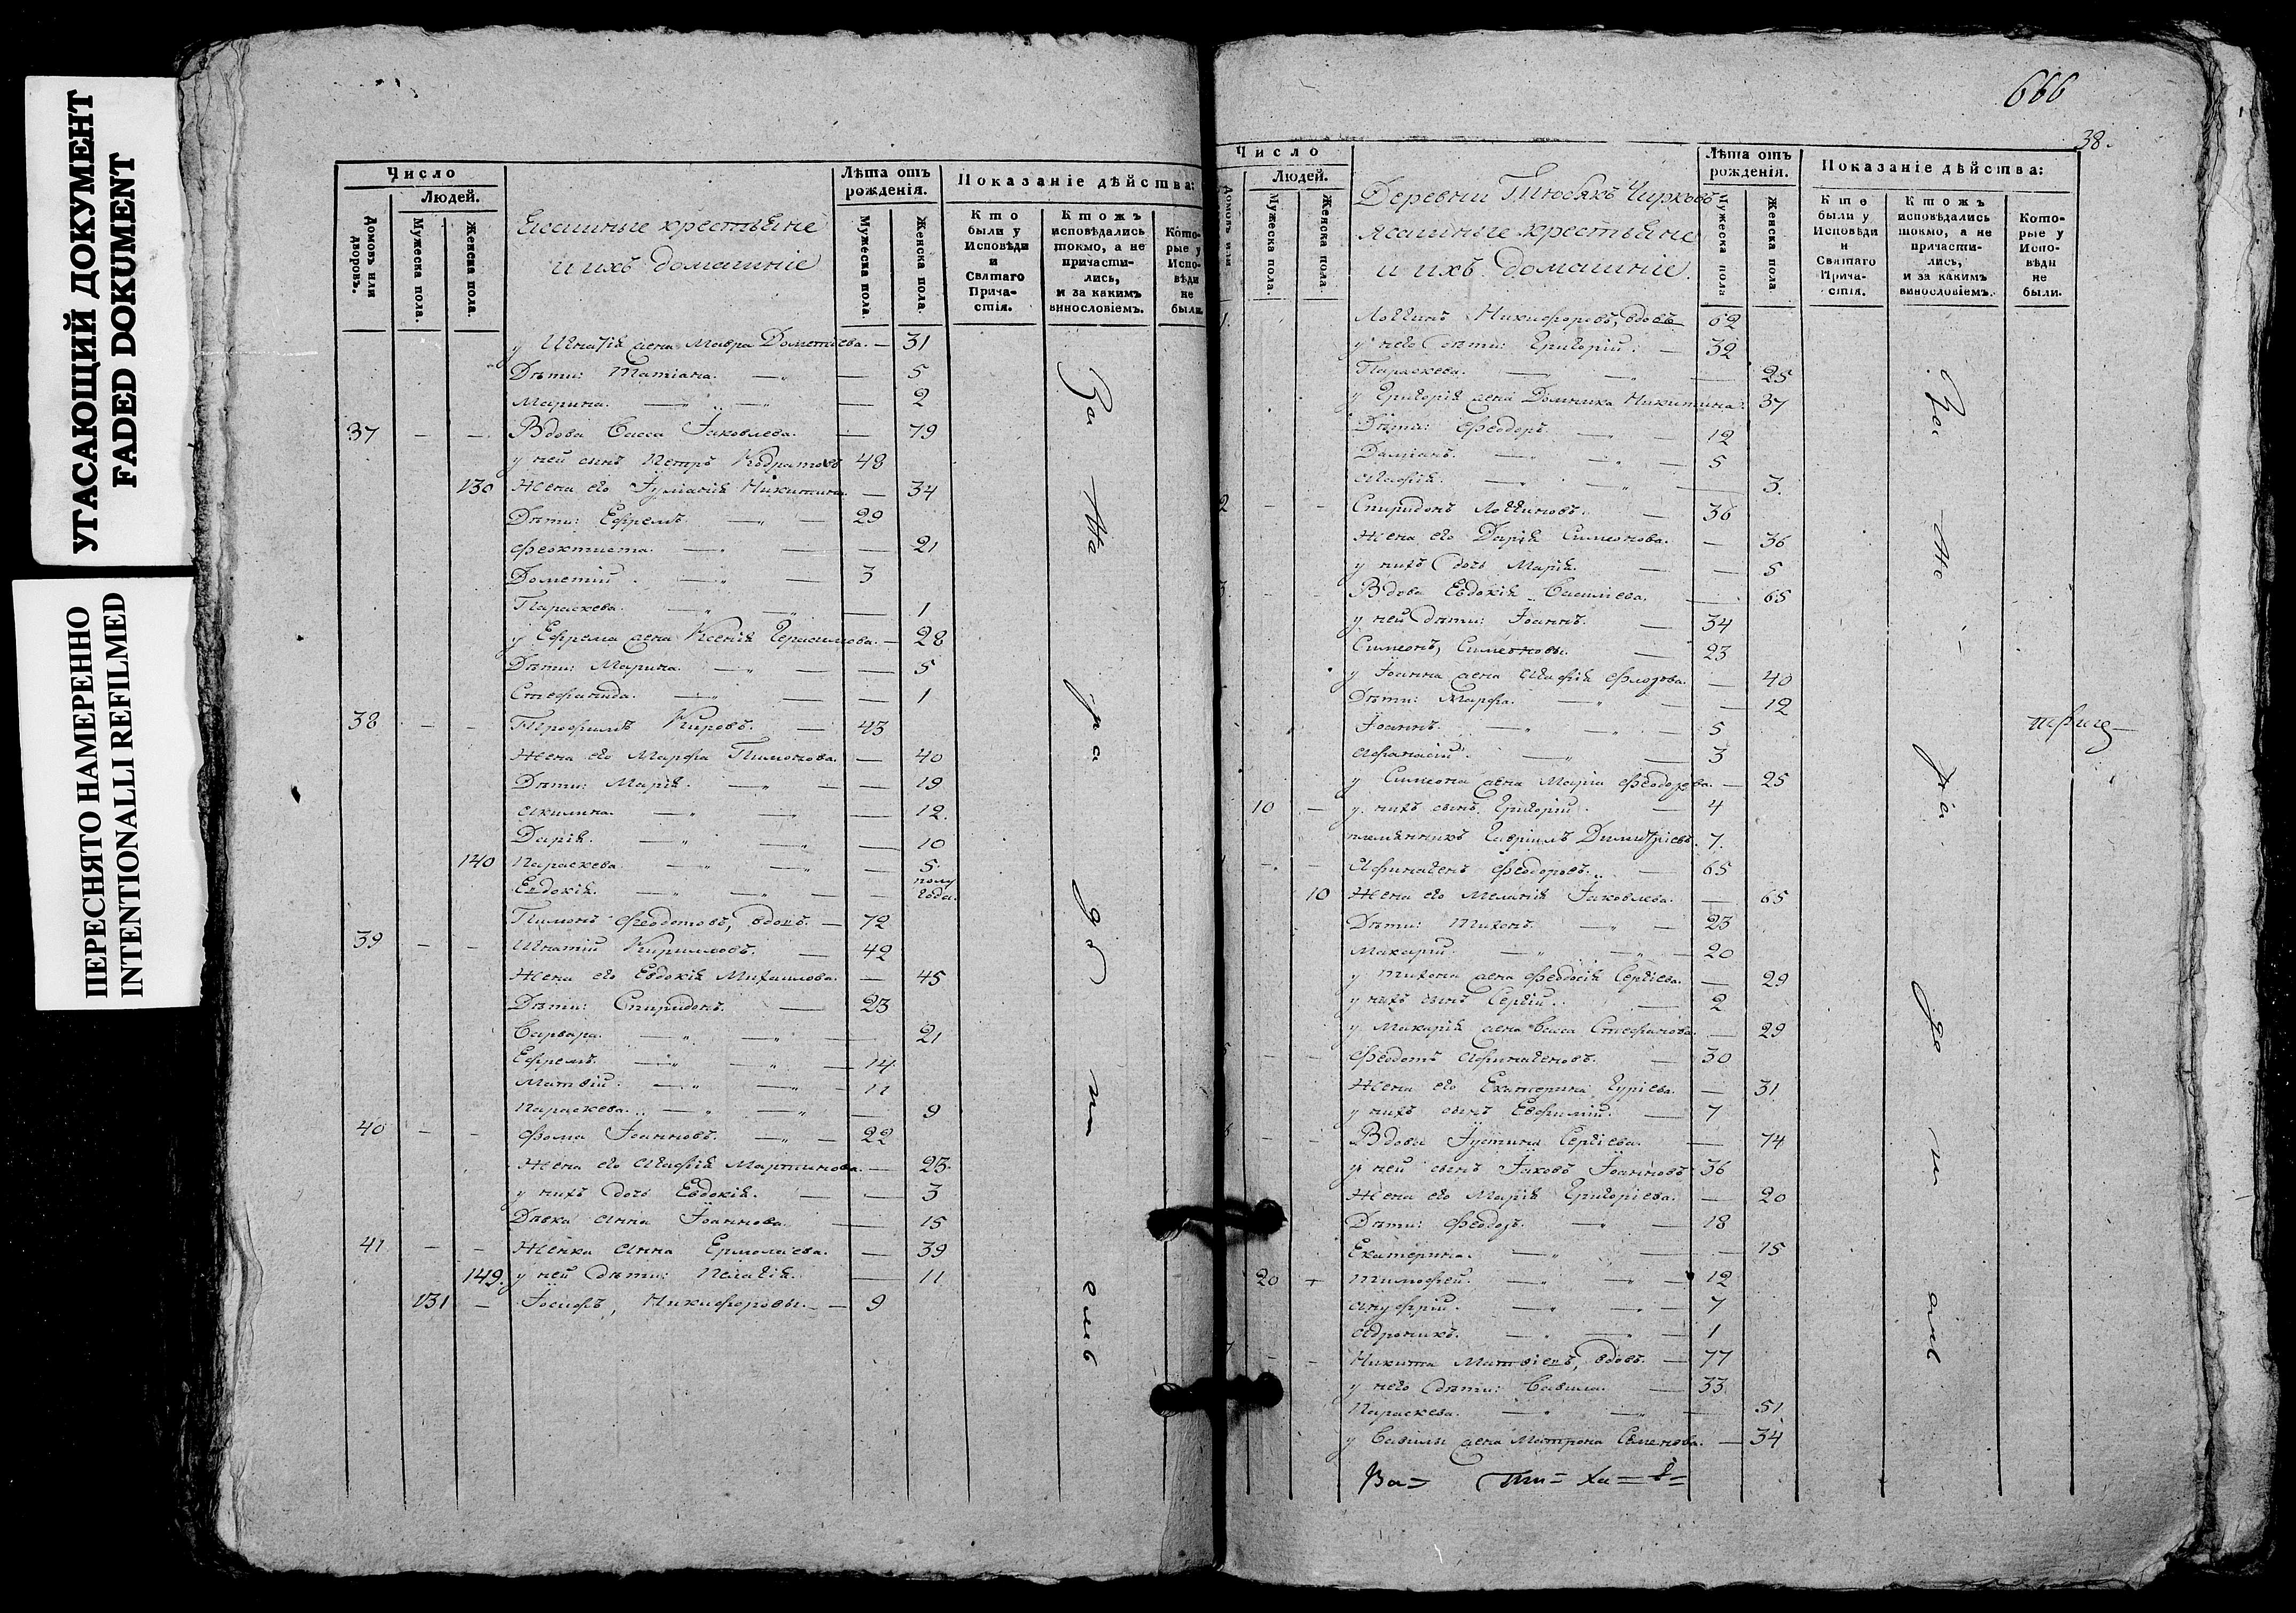 УГАСАЮЩИЙ ДОКУМЕНТ
FADED DOKUMENT
ПЕРЕСНЯТО НАМЕРЕННО
INTENTIONALLI REFILMED
Число
Людей.
Домовъ или дворовъ.
Мужеска пола.
Женска пола.
Ясашные крестьяне
и ихъ домашніе
Лѣта отъ рожденія.
Мужеска пола.
Женска пола.
Показаніе дѣйства:
Кто были у Исповѣди и Святаго Прича-стія.
Ктожъ исповѣдались токмо, а не причасти-лись, и за какимъ винословіемъ.
Кото-рые у Испо-вѣди не были.
у Игнатія жена Мавра Дометіева. — 31
Дѣти: Татіана. — 5
Марина. — 2
37 — — Вдова Васса Іаковлева. — 79
у ней сынъ Петръ Кодратовъ 48
130 Жена его Іуліанія Никитина — 34
Дѣти: Ефремъ. — 29
Феоктиста. — 21
Дометій. — 3
Параскева. — 1
у Ефрема жена Ксенія Герасимова. — 28
Дѣти: Марина. — 5
Стефанида. — 1
38 — — Трофимъ Кировъ. — 43
Жена его Марфа Пимонова. — 40
Дѣти: Марія. — 19
Акилина. — 12.
Дарія. — 10
140 Параскева — 5.
Евдокія. — полу года.
Пимонъ Феодотовъ, вдовъ. — 72
39 — — Игнатій Кирилловъ. — 42
Жена его Евдокія Михаилова. — 45
Дѣти: Спиридонъ. — 23
Варвара. — 21
Ефремъ. — 14.
Матвій. — 11
Параскева. — 9
40 — — Фома Іоанновъ. — 22
Жена его Агафія Мартинова. — 23.
у нихъ дочь Евдокія. — 3
Дѣвка Анна Іоаннова. — 15
41 — — Жёнка Анна Ермолаева. — 39
149. у ней дѣти: Пелагія. — 11
131 — Іосифъ, Никифоровы. — 9
За не ра дѣ ні емъ
666
38.
Число
Людей.
Домовъ или
Мужеска пола.
Женска пола.
Деревни Тюбякъ Чирковъ
Ясашные крестьяне
и ихъ домашніе.
Лѣта отъ рожденія.
Мужеска пола
Женска пола.
Показаніе дѣйства:
Кто были у Исповѣди и Святаго Прича-стія.
Ктожъ исповѣдались токмо, а не причасти-лись, и за какимъ винословіемъ.
Кото-рые у Испо-вѣди не были.
1. Логгинъ Никифоровъ, вдовъ 62
у него дѣти: Григорій. — 32
Параскева. — 25
у Григорія жена Домника Никитина. 37
Дѣти: Феодоръ. — 12
Даміанъ. — 5
Агафія. — 3.
2 — — Спиридонъ Логгиновъ. — 36
Жена его Дарія Симеонова. — 36
у нихъ дочь Марія. — 5
3. — — Вдова Евдокія Василіева. — 65
у ней дѣти: Іоаннъ. — 34
Симеонъ, Симеоновы. — 23
у Іоанна жена Агафія Флорова. — 40
Дѣти: Марфа. — 12
Іоаннъ. — 5
Афанасій. — 3
у Симеона жена Марія Феодорова. — 25
10 — у нихъ сынъ Григорій. — 4
племянникъ Гавріилъ Димитріевъ. 7.
— — Афиногенъ Феодоровъ. — 65
10 Жена его Меланія Іаковлева. — 65
Дѣти: Тихонъ. — 23
Макарій. — 20
у Тихона жена Феодосія Сергіева. — 29
у нихъ сынъ Сергій. — 2
у Макарія жена Васса Стефанова. — 29
— — Феодотъ Афиногеновъ. — 30
Жена его Екатерина Гуріева. — 31
у нихъ сынъ Евфимій. — 7
— — Вдова Іустина Сергіева. — 74
у ней сынъ Іаковъ Іоанновъ 36
Жена его Марія Григоріева. — 20
Дѣти: Феодоръ. — 18
Екатерина. — 15
20 + Тимофей. — 12
Ануфрій. — 7
Андроникъ. — 1
7 — — Никита Матвіевъ, вдовъ. — 77
у него дѣти: Вавила. — 33
Параскева. — 51
у Вавилы жена Матрона Семенова. — 34
За не ра дѣ ні емъ